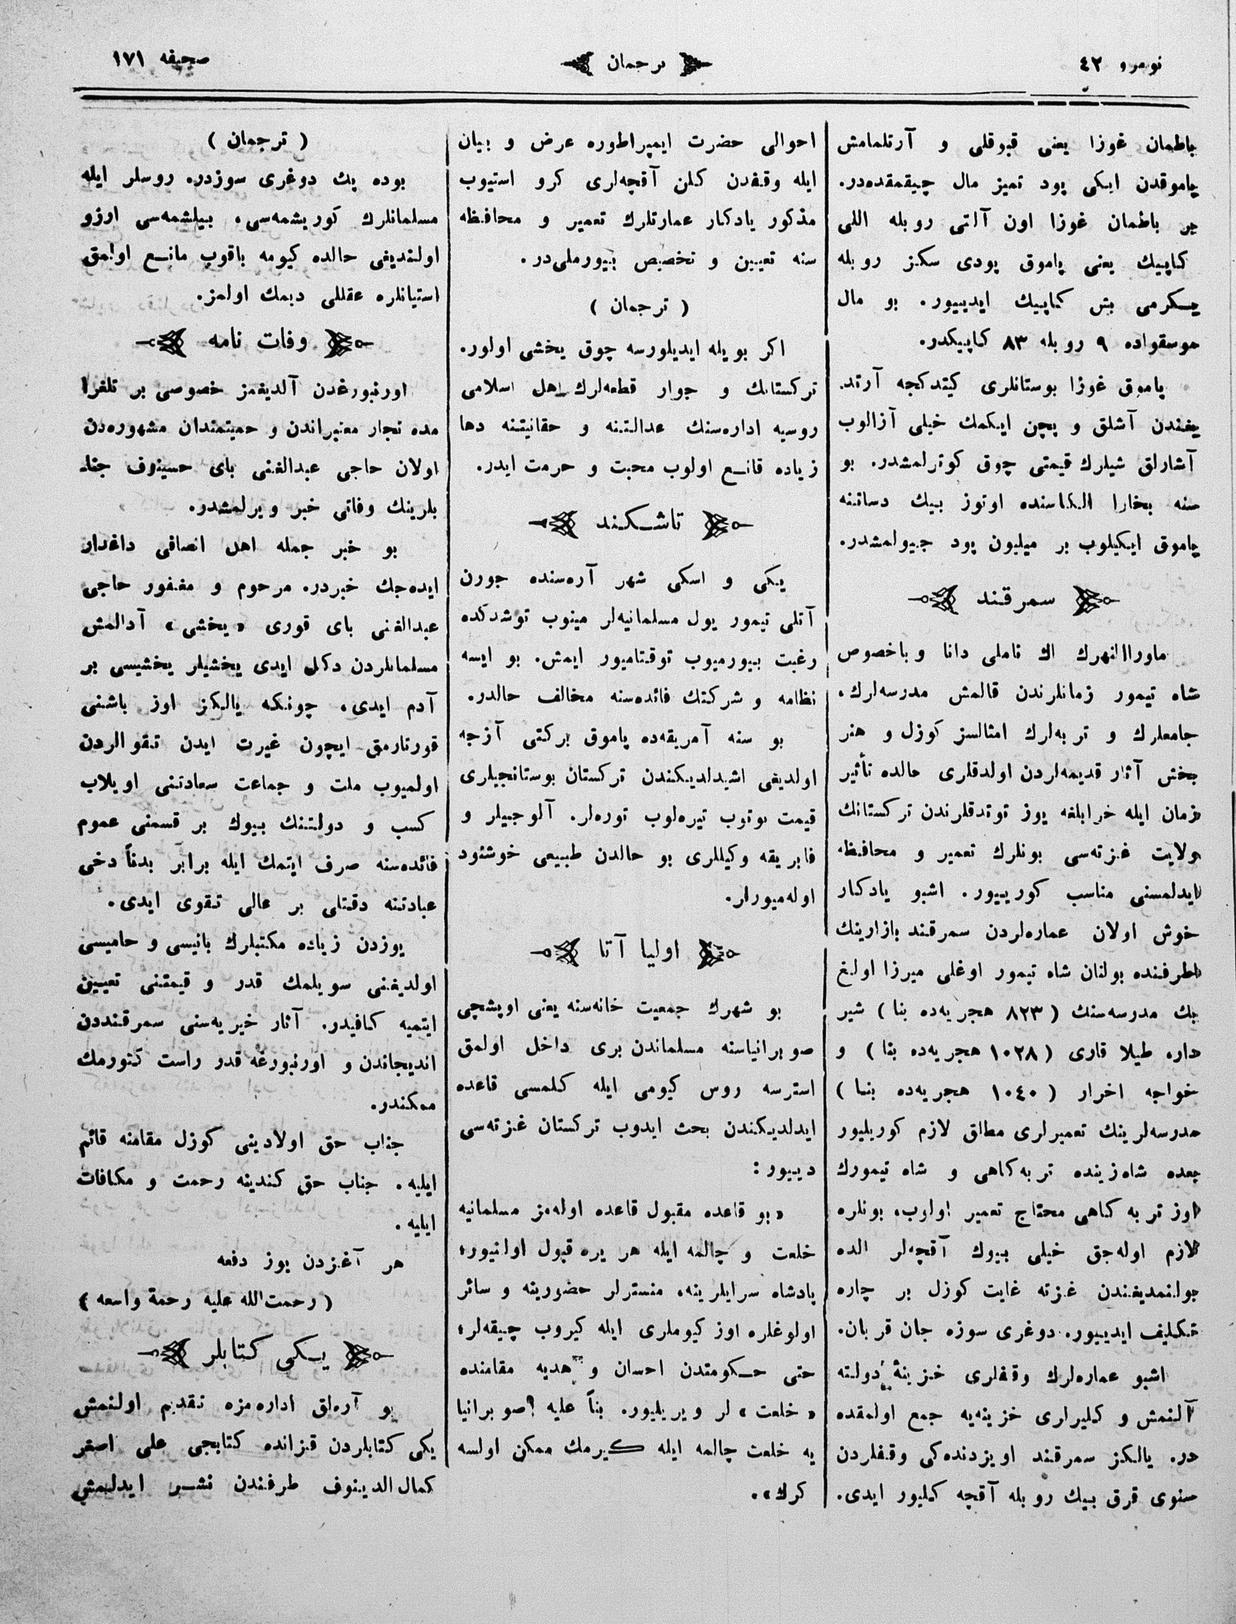 نومرو ٤٢
ترجمان
صحیفه ١٧١
باطمان غوزا یعنی قبوقلی و آرتلمامش
پاموقدن ایکی پود تمیز مال چیقمقده‌در.
بر باطمان غوزا اون آلتی روبله اللی
کاپیك یعنی پاموق پودی سکز روبله
یکرمی بش کاپیك ایدییور. بو مال
موسقواده ٩ روبله ٨٣ کاپیکدر.
پاموق غوزا بوستانلری کیتدکجه آرتد
یغندن آشلق و بچن ایکمك خیلی آزالوب
آشارلق شیلرك قیمتی چوق کوترلمشدر. بو
سنه بخارا الکاسنده اوتوز بیك دساتنه
پاموق ایکیلوب بر میلیون پود جییولمشدر.
سمرقند
ماوراالنهرك اك ناملی دانا و باخصوص
شاه تیمور زمانلرندن قالمش مدرسه‌لرك،
جامعلرك و تربه‌لرك امثالسز کوزل و هنر
بخش آثار قدیمه‌لردن اولدقلری حالده تأثیر
زمان ایله خرابلغه یوز توتدقلرندن ترکستانك
ولایت غزته‌سی بونلرك تعمیر و محافظه
ایدلمسنی مناسب کورییور. اشبو یادکار
خوش اولان عماره‌لردن سمرقند بازارینك
اطرفنده بولنان شاه تیمور اوغلی میرزا اولغ
بك مدرسه‌سنك ( ٨٢٣ هجریه‌ده بنا ) شیر
داره طیلا قاری ( ١٠٢٨ هجریه‌ده بنا ) و
خواجه اخرار ( ١٠٤٠ هجریه‌ده بنا )
مدرسه‌لرینك تعمیرلری مطالق لازم کوریلیور
بعده شاه‌زینده تربه‌کاهی و شاه تیمورك
اوز تربه کاهی محتاج تعمیر اولوب، بونلره
لازم اوله‌جق خیلی بیوك آقچه‌لر الده
بولنمدیغندن غزته غایت کوزل بر چاره
تکلیف ایدییور. دوغری سوزه جان قربان.
اشبو عماره‌لرك وقفلری خزینهٔ دولته
آلنمش و کلیراری خزینه‌یه جمع اولمقده
در. یالکز سمرقند اویزدنده‌کی وقفلردن
سنوی قرق بیك روبله آقچه کلیور ایدی.
احوالی حضرت ایمپراطوره عرض و بیان
ایله وقفدن کلن آقچه‌لری کرو استیوب
مذکور یادکار عمارتلرك تعمیر و محافظه
سنه تعیین و تخصیص بیورملی‌در.
( ترجمان )
اکر بویله ایدیلورسه چوق یخشی اولور.
ترکستانك و جوار قطعه‌لرك اهل اسلامی
روسیه اداره‌سنك عدالتنه و حقانیتنه دها
زیاده قانع اولوب محبت و حرمت ایدر.
تاشکند
یکی و اسکی شهر آره‌سنده جورن
آتلی تیمور یول مسلمانیه‌لر مینوب توشدکده
رغبت بیورمیوب توقتامیور ایمش. بو ایسه
نظامه و شرکتك فائده‌سنه مخالف حالدر.
بو سنه آمریقه‌ده پاموق برکتی آزجه
اولدیغی اشیدلدیکندن ترکستان بوستانجیلری
قیمت توتوب تیره‌لوب توره‌لر. آلوجیلر و
فابریقه وکیللری بو حالدن طبیعی خوشنود
اوله‌میورلر.
اولیا آتا
بو شهرك جمعیت خانه‌سنه یعنی اویشچی
صوبرانیاسنه مسلماندن بری داخل اولمق
استرسه روس کیومی ایله کلمسی قاعده
ایدلدیکندن بحث ایدوب ترکستان غزته‌سی
دییور :
«بو قاعده مقبول قاعده اوله‌مز مسلمانیه
خلعت و چالمه ایله هر یره قبول اولنیور؛
پادشاه سرایلرینه، منسترلر حضورینه و سائر
اولوغلره اوز کیوملری ایله کیروب چیقه‌لر؛
حتی حکومتدن احسان و هدیه مقامنده
«خلعت» لر ویریلیور. بناً علیه صوبرانیا
یه خلعت چالمه ایله کیرمك ممکن اولسه
کرك».
( ترجمان )
بوده پك دوغری سوزدر. روسلر ایله
مسلمانلرك کوریشمه‌سی، بیلشمه‌سی ارزو
اولندیغی حالده کیومه باقوب مانع اولمق
استیانلره عقللی دیمك اولمز.
وفات نامه
اورنبورغدن آلدیغمز خصوصی بر تلغرا
مده تجار معتبراندن و حمیتمندان مشهوره‌دن
اولان حاجی عبدالغنی بای حسینوف جنا
بلرینك وفاتی خبر ویرلمشدر.
بو خبر جمله اهل انصافی داغدار
ایده‌جك خبردر. مرحوم و مغفور حاجی
عبدالغنی بای قوری «یخشی» آدالمش
مسلمانلردن دکل ایدی یخشیلر یخشیسی بر
آدم ایدی، چونکه یالکز اوز باشنی
قورتارمق ایچون غیرت ایدن تقوالردن
اولمیوب ملت و جماعت سعادتنی اویلاب
کسب و دولتنك بیوك بر قسمنی عموم
فائده‌سنه صرف ایتمك ایله برابر بدناً دخی
عبادتنه دقتلی بر عالی تقوی ایدی.
یوزدن زیاده مکتبلرك بانیسی و حامیسی
اولدیغنی سویلمك قدر و قیمتنی تعیین
ایتمیه کافیدر. آثار خیریه‌سنی سمرقنددن
اندیجاندن و اورنبورغه قدر راست کتورمك
ممکندر.
جناب حق اولادینی کوزل مقامنه قائم
ایلیه. جناب حق کندینه رحمت و مکافات
ایلیه.
هر آغزدن یوز دفعه
( رحمت الله علیه رحمة واسعه )
یکی کتابلر
بو آره‌لق اداره‌مزه تقدیم اولنمش
یکی کتابلردن قزانده کتابجی علی اصغر
کمال الدینوف طرفندن نشر ایدلمش